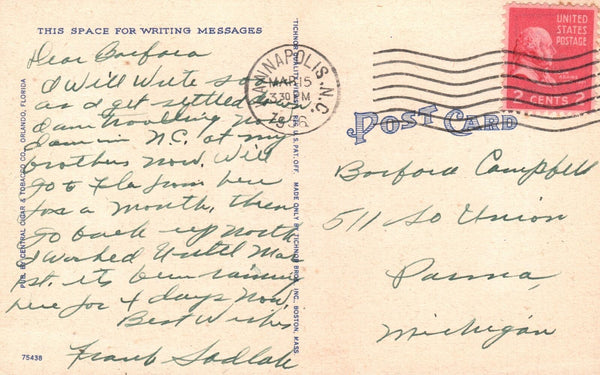 THIS SPACE FOR WRITING MESSAGES
Dear Barbara
I will write soon
as I get settled down
I am travelling now
I am in N.C. at my
brothers now. Will
go to Fla from here
for a month, then
go back up north
I worked until Mar
1st. its been raining
here for 4 days now,
Best Wishes
Frank Sadlak
75438
PUB. BY CENTRAL CIGAR & TOBACCO CO., ORLANDO, FLORIDA
MADE ONLY BY TICHNOR BROS., INC., BOSTON, MASS
KANNAPOLIS, N.C.
MAR 15
3 30 PM
UNITED
STATES
POSTAGE
2 CENTS 2
POST CARD
Barbara Campbell
511 So Union
Parma,
Michigan